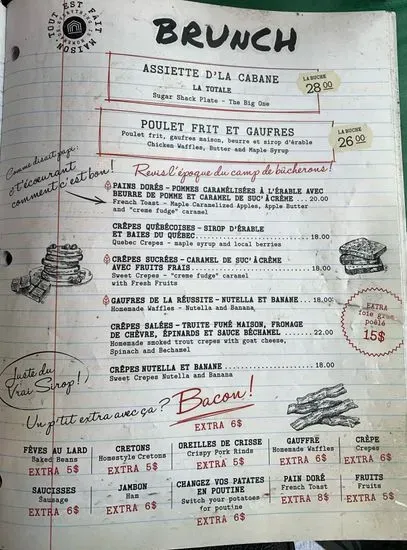 TOUT EST FAIT MAISON
EVERYTHING IS HOMEMADE
BRUNCH
ASSIETTE D'LA CABANE
LA TOTALE
Sugar Shack Plate - The Big One
LA BUCHE
28.00
POULET FRIT ET GAUFRES
Poulet frit, gaufres maison, beurre et sirop d'érable
Chicken Waffles, Butter and Maple Syrup
LA BUCHE
26.00
Comme disait papi:
C't'écoeurant
comment c'est bon!
Revis l'époque du camp de bûcherons!
PAINS DORÉS - POMMES CARAMÉLISÉES À L'ÉRABLE AVEC
BEURRE DE POMME ET CARAMEL DE SUC'ÀCRÈME ...20.00
French Toast - Maple Caramelized Apples, Apple Butter
and "creme fudge" caramel
CRÊPES QUÉBÉCOISES - SIROP D'ÉRABLE
ET BAIES DU QUÉBEC 18.00
Quebec Crepes - maple syrup and local berries
CRÊPES SUCRÉES - CARAMEL DE SUC'ÀCRÈME
AVEC FRUITS FRAIS 18.00
Sweet Crepes - "creme fudge" caramel
with Fresh Fruits
GAUFRES DE LA RÉUSSITE - NUTELLA ET BANANE...18.00
Homemade Waffles - Nutella and Banana
CRÊPES SALÉES - TRUITE FUMÉ MAISON, FROMAGE
DE CHÈVRE, ÉPINARDS ET SAUCE BÉCHAMEL 22.00
Homemade smoked trout crepes with goat cheese,
Spinach and Bechamel
CRÊPES NUTELLA ET BANANE 18.00
Sweet Crepes Nutella and Banana
EXTRA
foie gras
poêlé
15$
Juste du
Vrai Sirop!
Un p'tit extra avec ça? Bacon!
EXTRA 6$
FÈVES AU LARD
Baked Beans
EXTRA 5$
CRETONS
Homestyle Cretons
EXTRA 5$
OREILLES DE CRISSE
Crispy Pork Rinds
EXTRA 5$
GAUFFRE
Homemade Waffles
EXTRA 6$
CRÊPE
Crepes
EXTRA 6$
SAUCISSES
Sausage
EXTRA 6$
JAMBON
Ham
EXTRA 6$
CHANGEZ VOS PATATES
EN POUTINE
Switch your potatoes
for poutine
EXTRA 6$
PAIN DORÉ
French Toast
EXTRA 8$
FRUITS
Fruits
EXTRA 5$